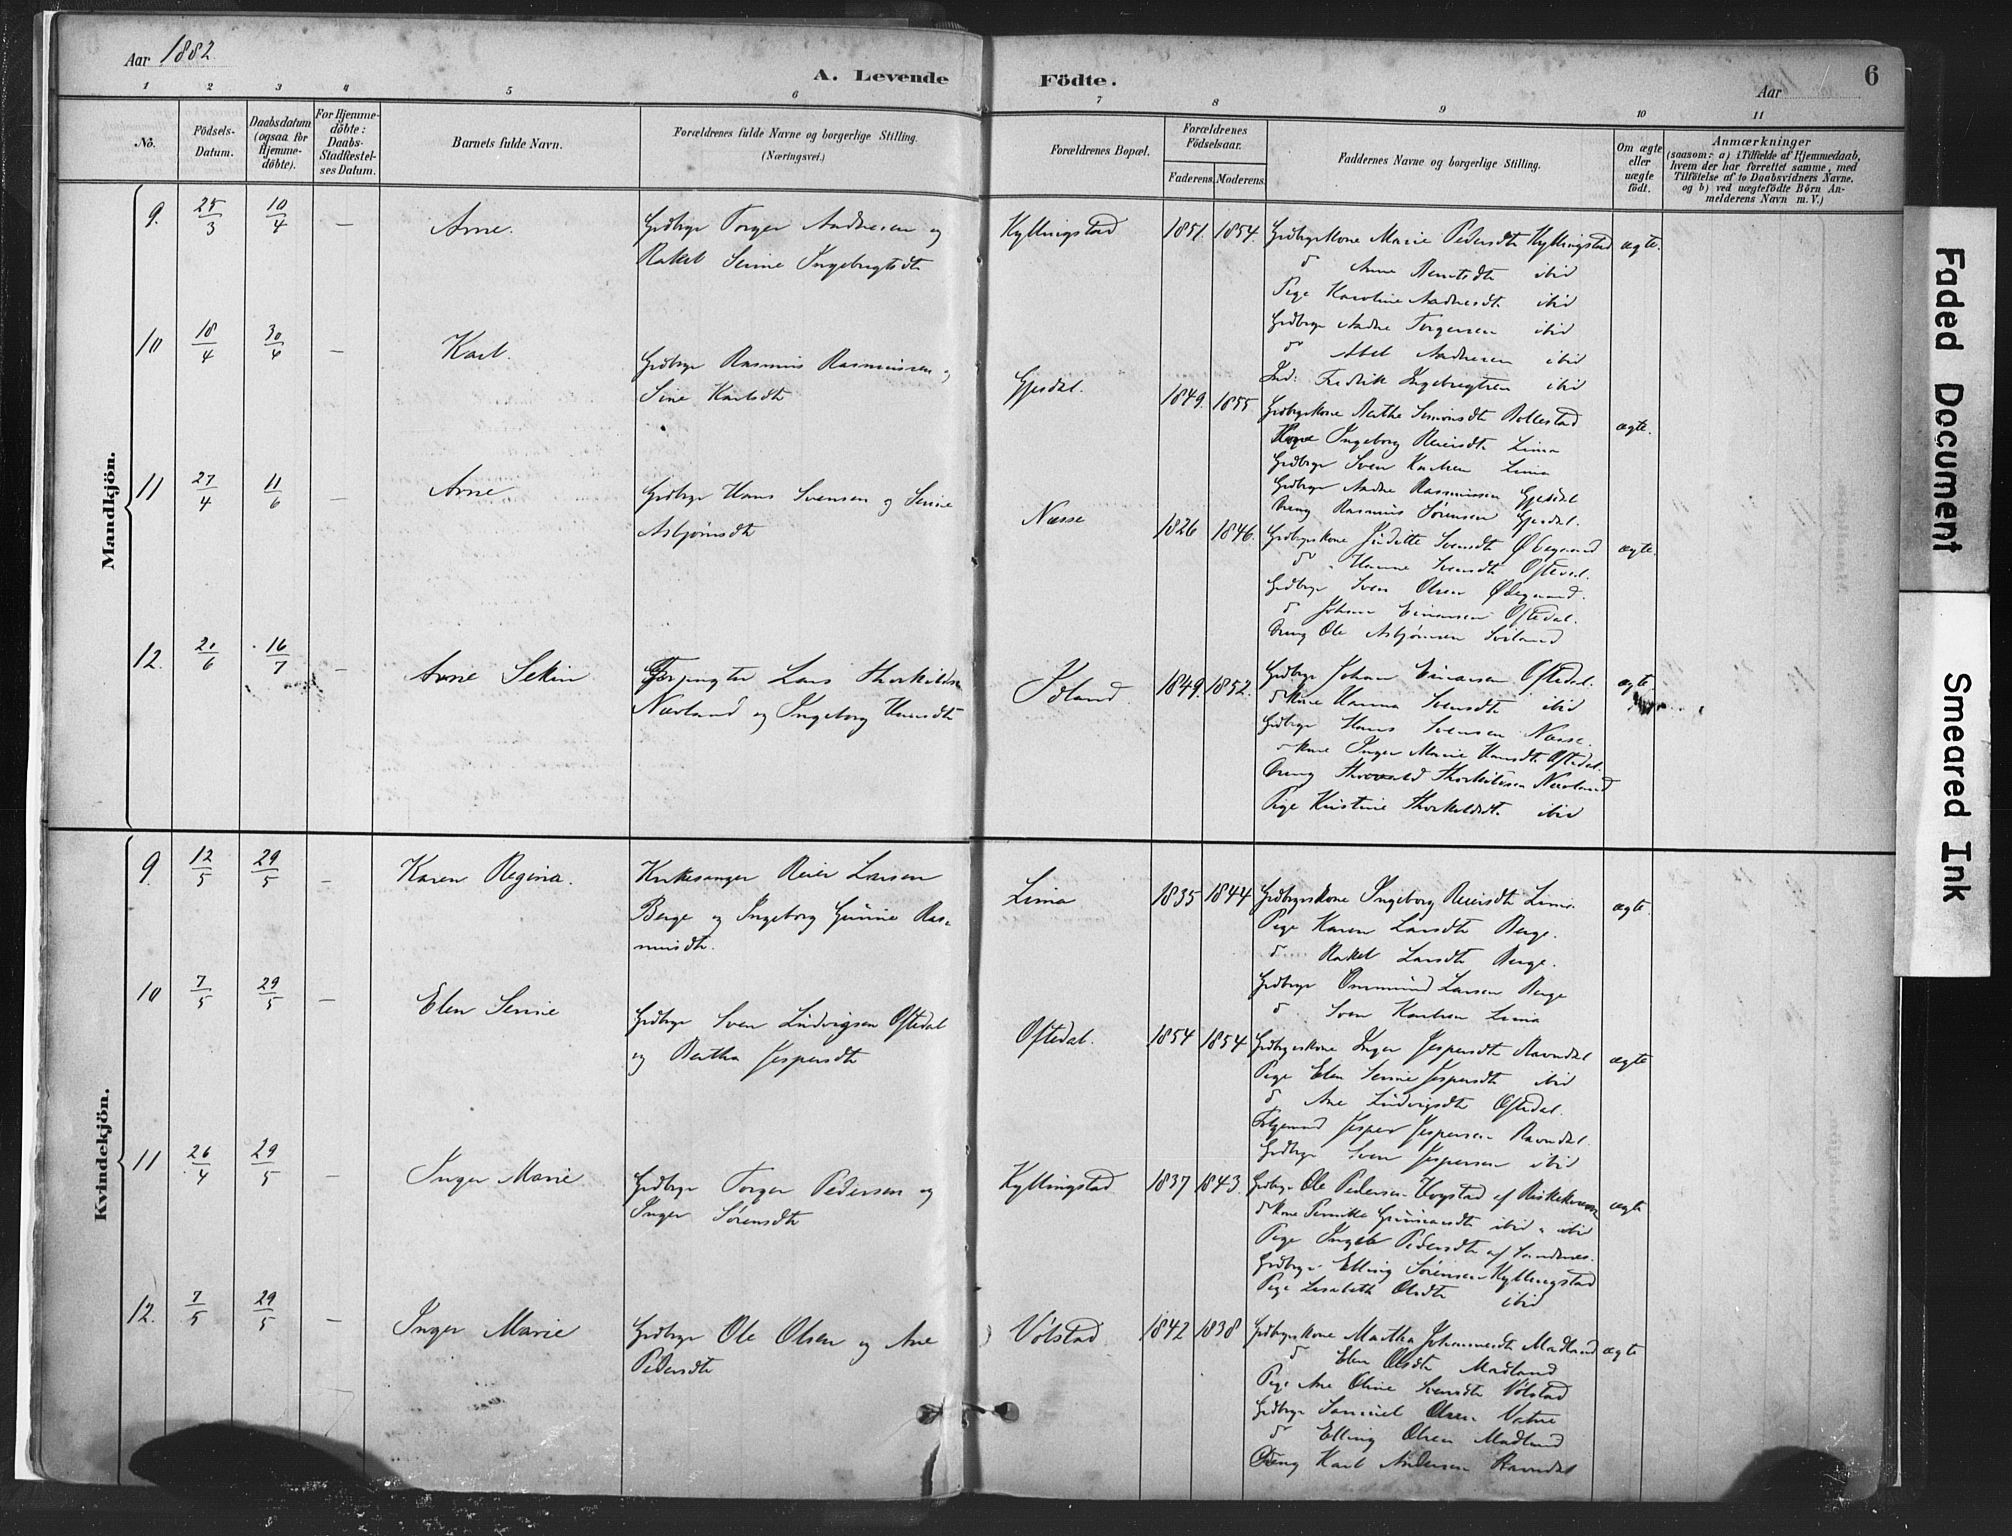 Aar 1882
A. Levende Födte.
Aar
6
1 2 3 4 5 6 7 8 9 10 11
No.
Födsels-Datum.
Daabsdatum (ogsaa for Hjemme-döbte).
For Hjemme-döbte: Daabs-Stadfæstel-ses Datum.
Barnets fulde Navn.
Forældrenes fulde Navne og borgerlige Stilling.
(Næringsvei.)
Forældrenes Bopæl.
Forældrenes Födselsaar.
Faderens. Moderens.
Faddernes Navne og borgerlige Stilling.
Om ægte eller uægte födt.
Anmærkninger
(saasom: a) i Tilfælde af Hjemmedaab,
hvem der har forrettet samme, med
Tilföielse af to Daabsvidners Navne.
og b) ved uægtefödte Börn An-
melderens Navn m. V.)
Mandkjön.
9. 25/3 10/4 — Arne.
Grdbrgr Torger Andreasen og
Rakel Serine Ingebrigtsdt
Kyllingstad 1851. 1854.
Grdbrgrkone Marie Pedersdt Kyllingstad ægte.
do Anne ibid
Pige Karoline Andreasdt. ibid
Grdbrgr Andre Torgersen ibid
do Abel Andreasen ibid
Ind: Fredrik Ingebrigtsen ibid
10 18/4 30/4 — Karl.
Grdbrgr Rasmus Rasmussen og
Sine Karlsdt
Gjesdal. 1849. 1855
Grdbrgrkone Berthe Simonsdt Bollestad ægte.
Ingeborg Reiersdt Lima
Grdbrgr Sven Karlsen Lima
Grdbrgr Andre Rasmussen Gjesdal
Dreng Rasmus Sørensen Gjesdal.
11 27/4 11/6 — Arne
Grdbrgr Hans Svensen og Serine
Asbjørnsdt
Næsse 1826 1846.
Grdbrgrkone Juditte Svensdt Ødegaard ægte.
do Hanne Svensdt Oftedal.
Grdbrgr Sven Olsen Ødegaard.
do Johan Einarsen Oftedal.
Dreng Ole Asbjørnsen Sviland
12. 20/6 16/7 — Arne Sekin
Lars Thorkildsen
Nævland og Ingeborg Hansdt
Idland 1849. 1852.
Grdbrgr Johan Einarsen Oftedal. ægte
do kone Hanna Svensdt ibid
Grdbrgr Hans Svensen Næsse.
do kone Inger Marie Hansdt Oftedal.
Dreng Thorvald Thorkildsen Nævland
Pige Kristine Thorkildsdt. ibid
Kvindekjön.
9. 12/5 29/5 — Karen Regina.
Kirkesanger Reier Larsen
Berge og Ingeborg Gurine Ras-
musdt.
Lima 1835 1844
Grdbrgrkone Ingeborg Reiersdt Lima. ægte.
Pige Karen Larsdt Berge.
do Rakel Larsdt Berge.
Grdbrgr Ommund Larsen Berge
do Sven Karlsen Lima
10 7/5 29/5 — Elen Serine
Grdbrgr Sven Ludvigsen Oftedal
og Bertha Jespersdt
Oftedal. 1854 1854
Grdbrgrkone Inger Jespersdt Ravndal ægte
Pige Elen Serine Jespersdt ibid
do Ane Ludvigsdt Oftedal.
Jesper Jespersen Ravndal.
Grdbrgr Sven Jespersen ibid
11 26/4 29/5 — Inger Marie
Grdbrgr Torger Pedersen og
Inger Sørensdt
Kyllingstad 1837 1843.
Grdbrgr Ole Pedersen Hogstad af Riskekvam ægte
do kone Pernille Gunnarsdt ibid
Pige Pedersdt af Sandnes.
Grdbrgr Elling Sørensen Kyllingstad
Pige Lisabeth Olsdt ibid
12. 7/5 29/5 — Inger Marie
Grdbrgr Ole Olsen og Ane
Pedersdt
Vølstad 1842 1838
Grdbrgrkone Martha Johannesdt Madland ægte
do Elen Olsdt Madland
Pige Ane Oline Svensdt Vølstad
Grdbrgr Samuel Olsen Vatne
do Elling Olsen Madland
Dreng Karl Andersen Ravndal
Faded Document
Smeared Ink